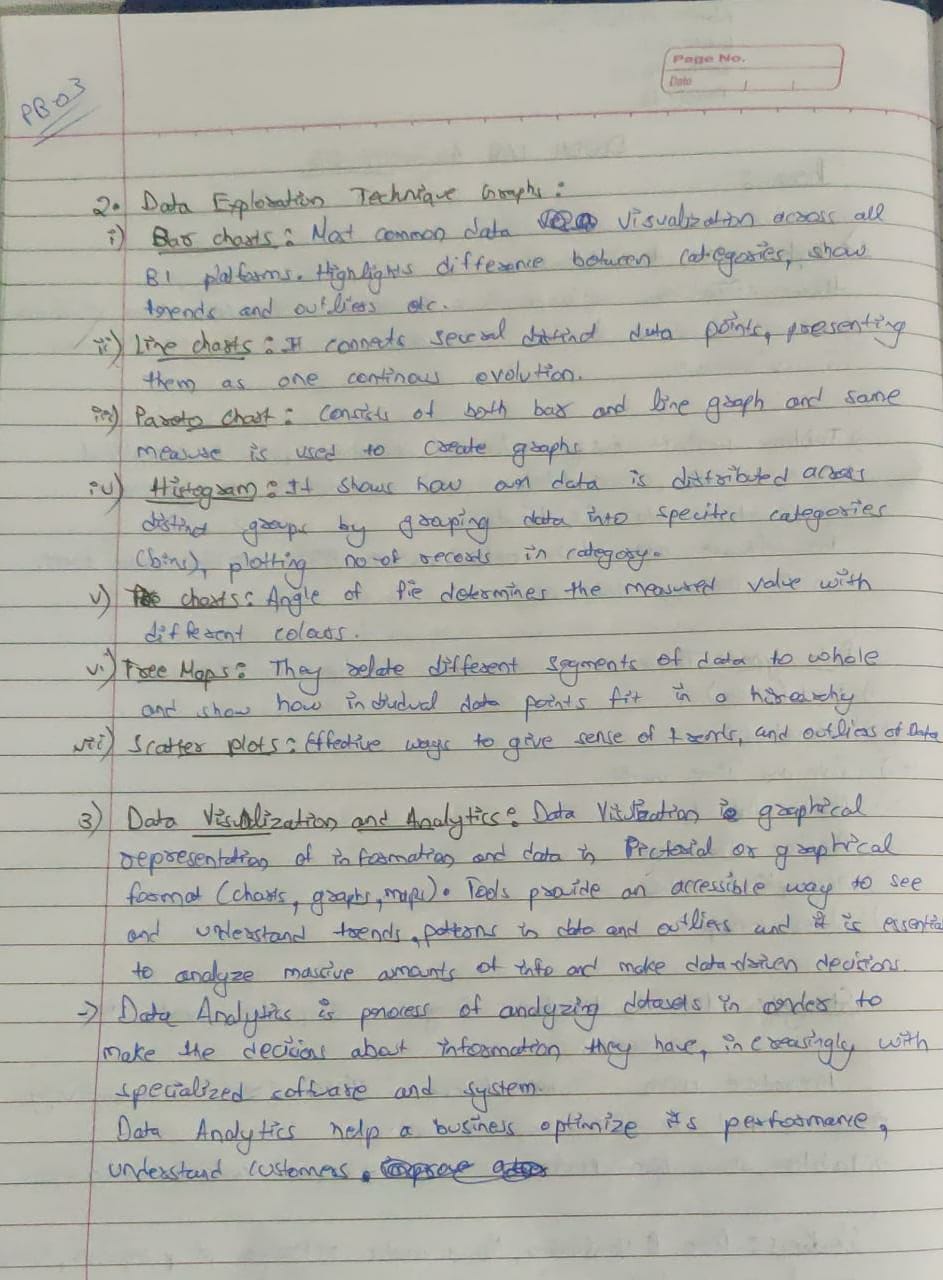 Page No.
Date
PB-03
2. Data Exploration Technique Graphs :
i) Bar charts : Most common data visualization across all
BI platforms. Highlights difference between categories, show
trends and outliers etc.
ii) Line charts : It connects several distind data points, presenting
them as one continous evolution.
iii) Pareto chart : Consists of both bar and line graph and same
measure is used to create graphs
iv) Histogram : It shows how our data is distributed across
distinct groups by grouping data into specific categories
(bins), plotting no. of records in category.
v) Pie charts : Angle of Pie determines the measured value with
different colours.
vi) Tree Maps : They relate different segments of data to whole
and show how individual data points fit in a hirearchy
vii) Scatter plots : Effective ways to give sense of trends, and outliers of Data
3) Data Visualization and Analytics : Data Visulization is graphical
representation of information and data in Pictorial or graphical
format (charts, graphs, maps). Tools provide an accessible way to see
and understand trends, patterns in data and outliers and it is essential
to analyze massive amounts of info and make data-driven decisions.
→ Data Analytics is process of analyzing datasets in order to
make the decisions about information they have, increasingly with
specialized software and system.
Data Analytics help a business optimize its performance,
understand customers.